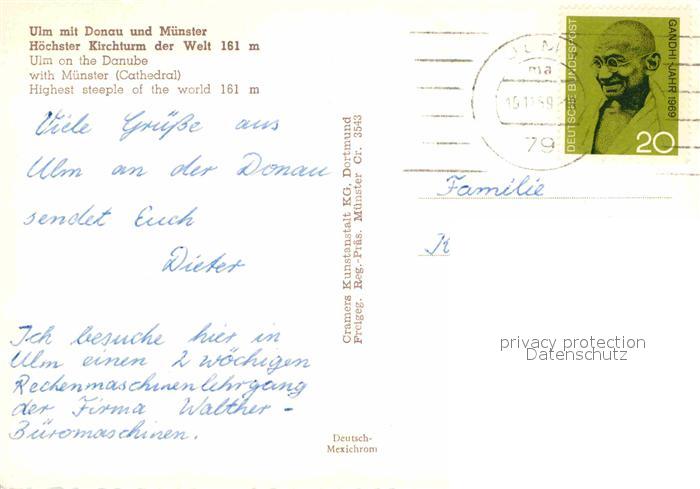 Ulm mit Donau und Münster
Höchster Kirchturm der Welt 161 m
Ulm on the Danube
with Münster (Cathedral)
Highest steeple of the world 161 m
Viele Grüße aus
Ulm an der Donau
sendet Euch
Dieter
Ich besuche hier in
Ulm einen 2 wöchigen
Rechenmaschinenlehrgang
der Firma Walther-
Büromaschinen.
Cramers Kunstanstalt KG, Dortmund
Freigeg. Reg.-Präs. Münster Cr. 3543
Deutsch-
Mexichrom
ULM
79
DEUTSCHE BUNDESPOST
GANDHI-JAHR 1969
20
Familie
K
privacy protection
Datenschutz